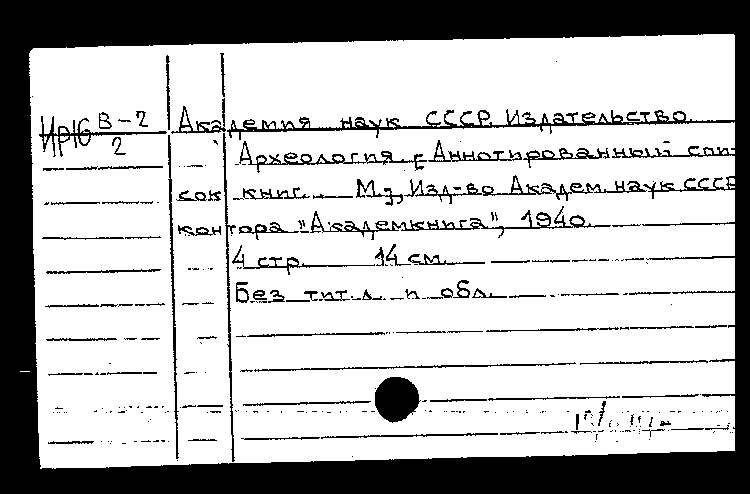 ИР16 В-2
2
Академия наук СССР. Издательство.
Археология. [Аннотированный спи-
сок книг. М.], Изд-во Академ. наук СССР
контора "Академкнига", 1940.
4 стр. 14 см.
Без тит. л. и обл.